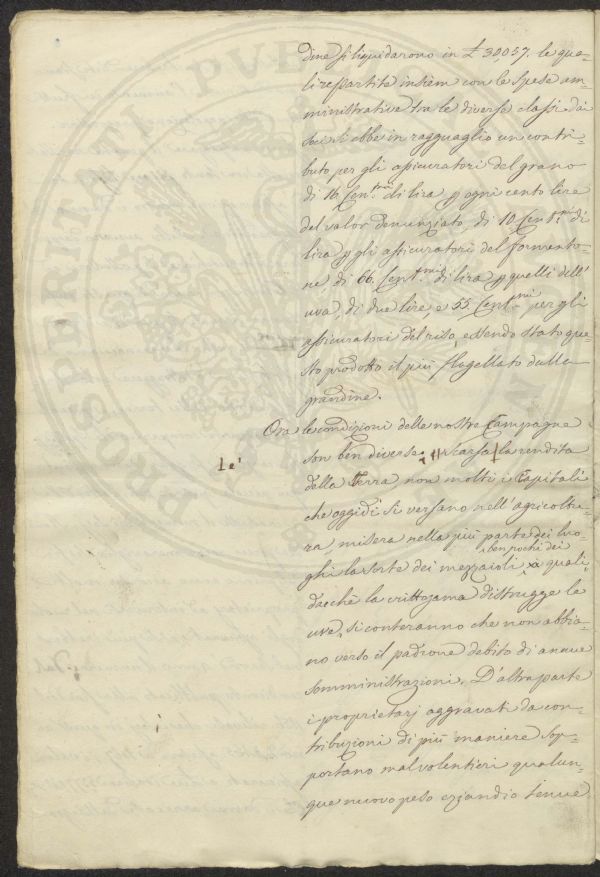 dine si liquidarono in £ 30,057. le qua-
li respartite insiem con le spese am-
ministrative tra le diverse classi dei
soci si ebbe in ragguaglio un contri-
buto per gli assicuratori del grano
di 16. Cen.tmi di lira p ogni cento lire
del valor denunziato, di 10 Cent.mi di
lira p gli assicuratori del formento-
ne di 66. Cent.mi di lira p quelli dell'
uva, di due lire, e 55. Cent.mi per gli
assicuratori del riso, essendo stato que-
sto prodotto il più flagellato dalla
grandine.
Ora le condizioni delle nostre Campagne
son ben diverse; scarsa la rendita
⊥ e'
della terra non molti i Capitali
che oggidì si versano nell'agricoltu-
ra, misera nella più parte dei luo-
ghi la sorte dei mezzaioli, quali,
ben pochi dei
dacchè la crittogama distrugge le
uve, si conteranno che non abbia-
no verso il padrone debito di annue
somministrazioni. D'altra parte
i proprietarj aggravati da con-
tribuzioni di più maniere sop-
portano mal volentieri qualun-
que nuovo peso eziandio tenue
PROSPERITATI PVB